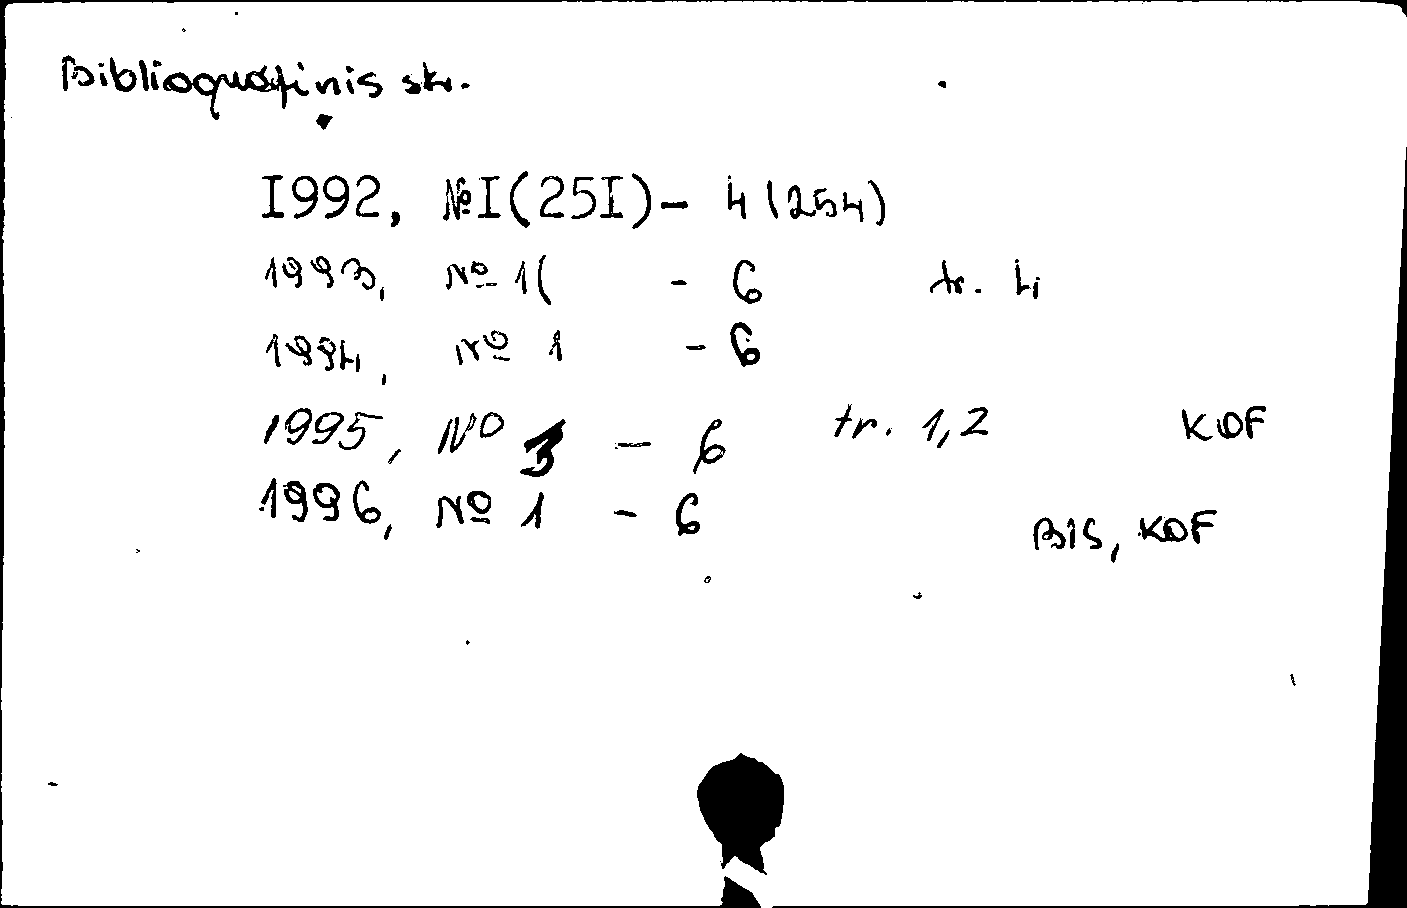 Bibliografinis sk.
I992, №I(25I)- 4(254)
1993, № 1( - 6 tr. 4
1994, № 1 - 6
1995, № 3 - 6 tr. 1,2 KOF
1996, № 1 - 6
BIS, KOF